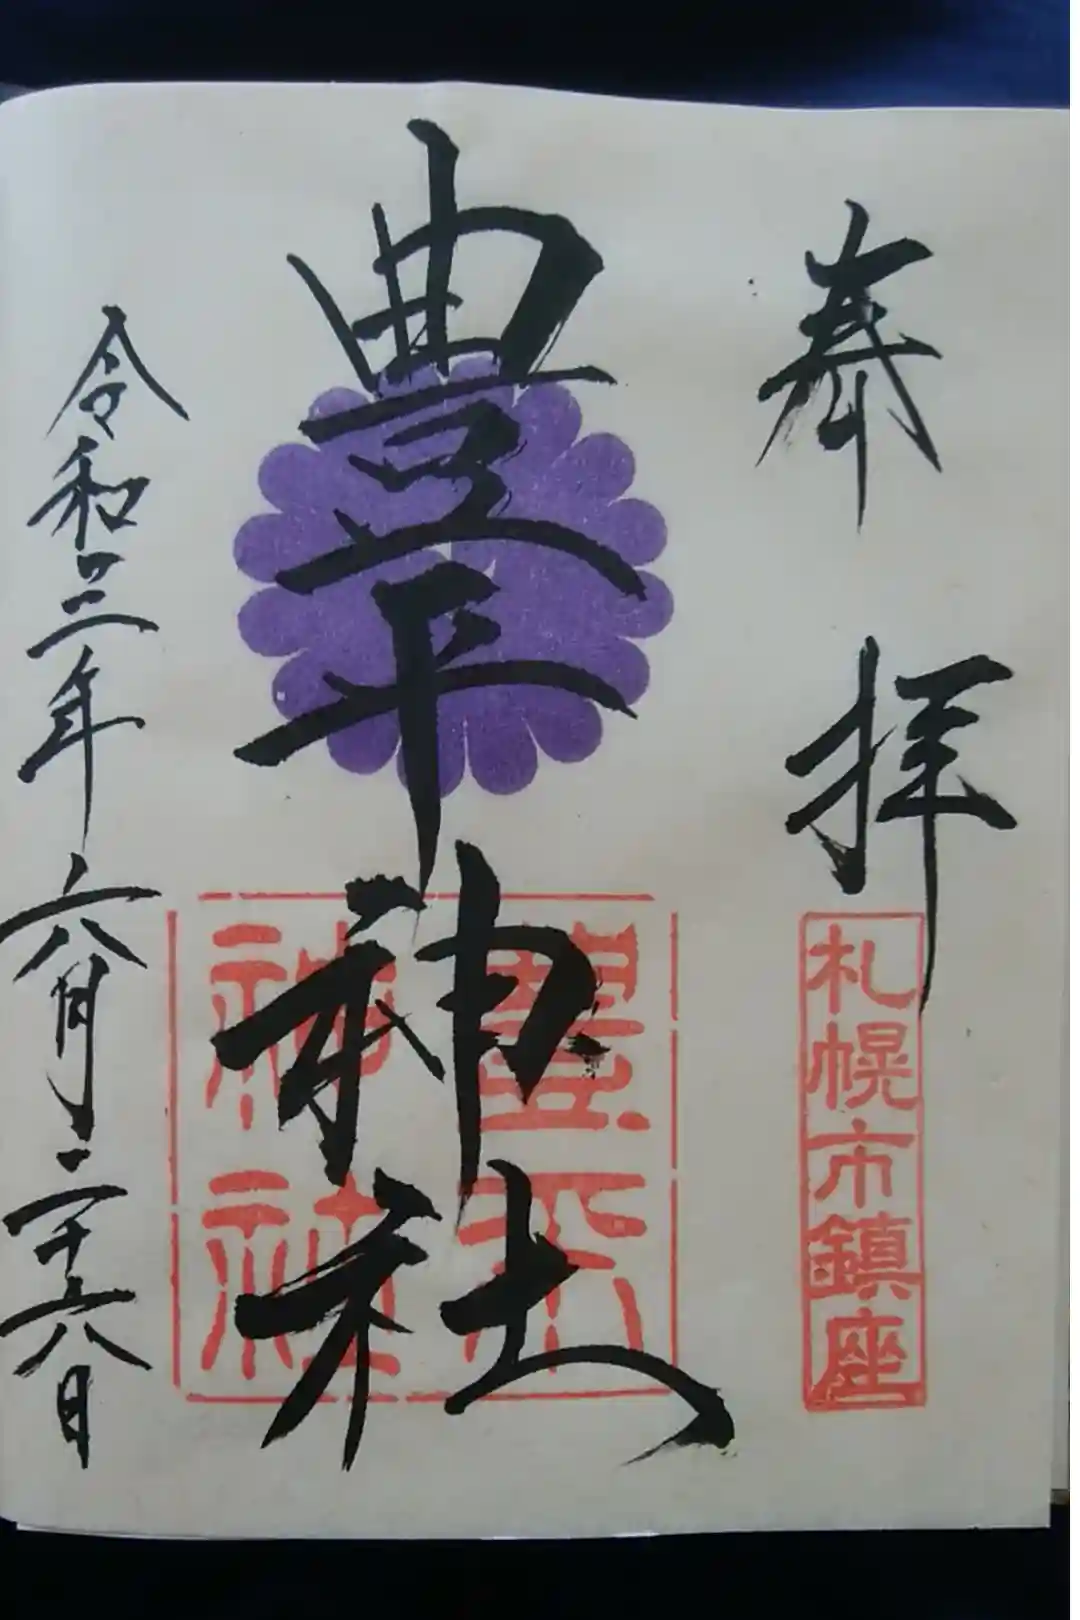 奉拝
札幌市鎮座
豊平神社
豊平
神社
令和三年六月二十六日